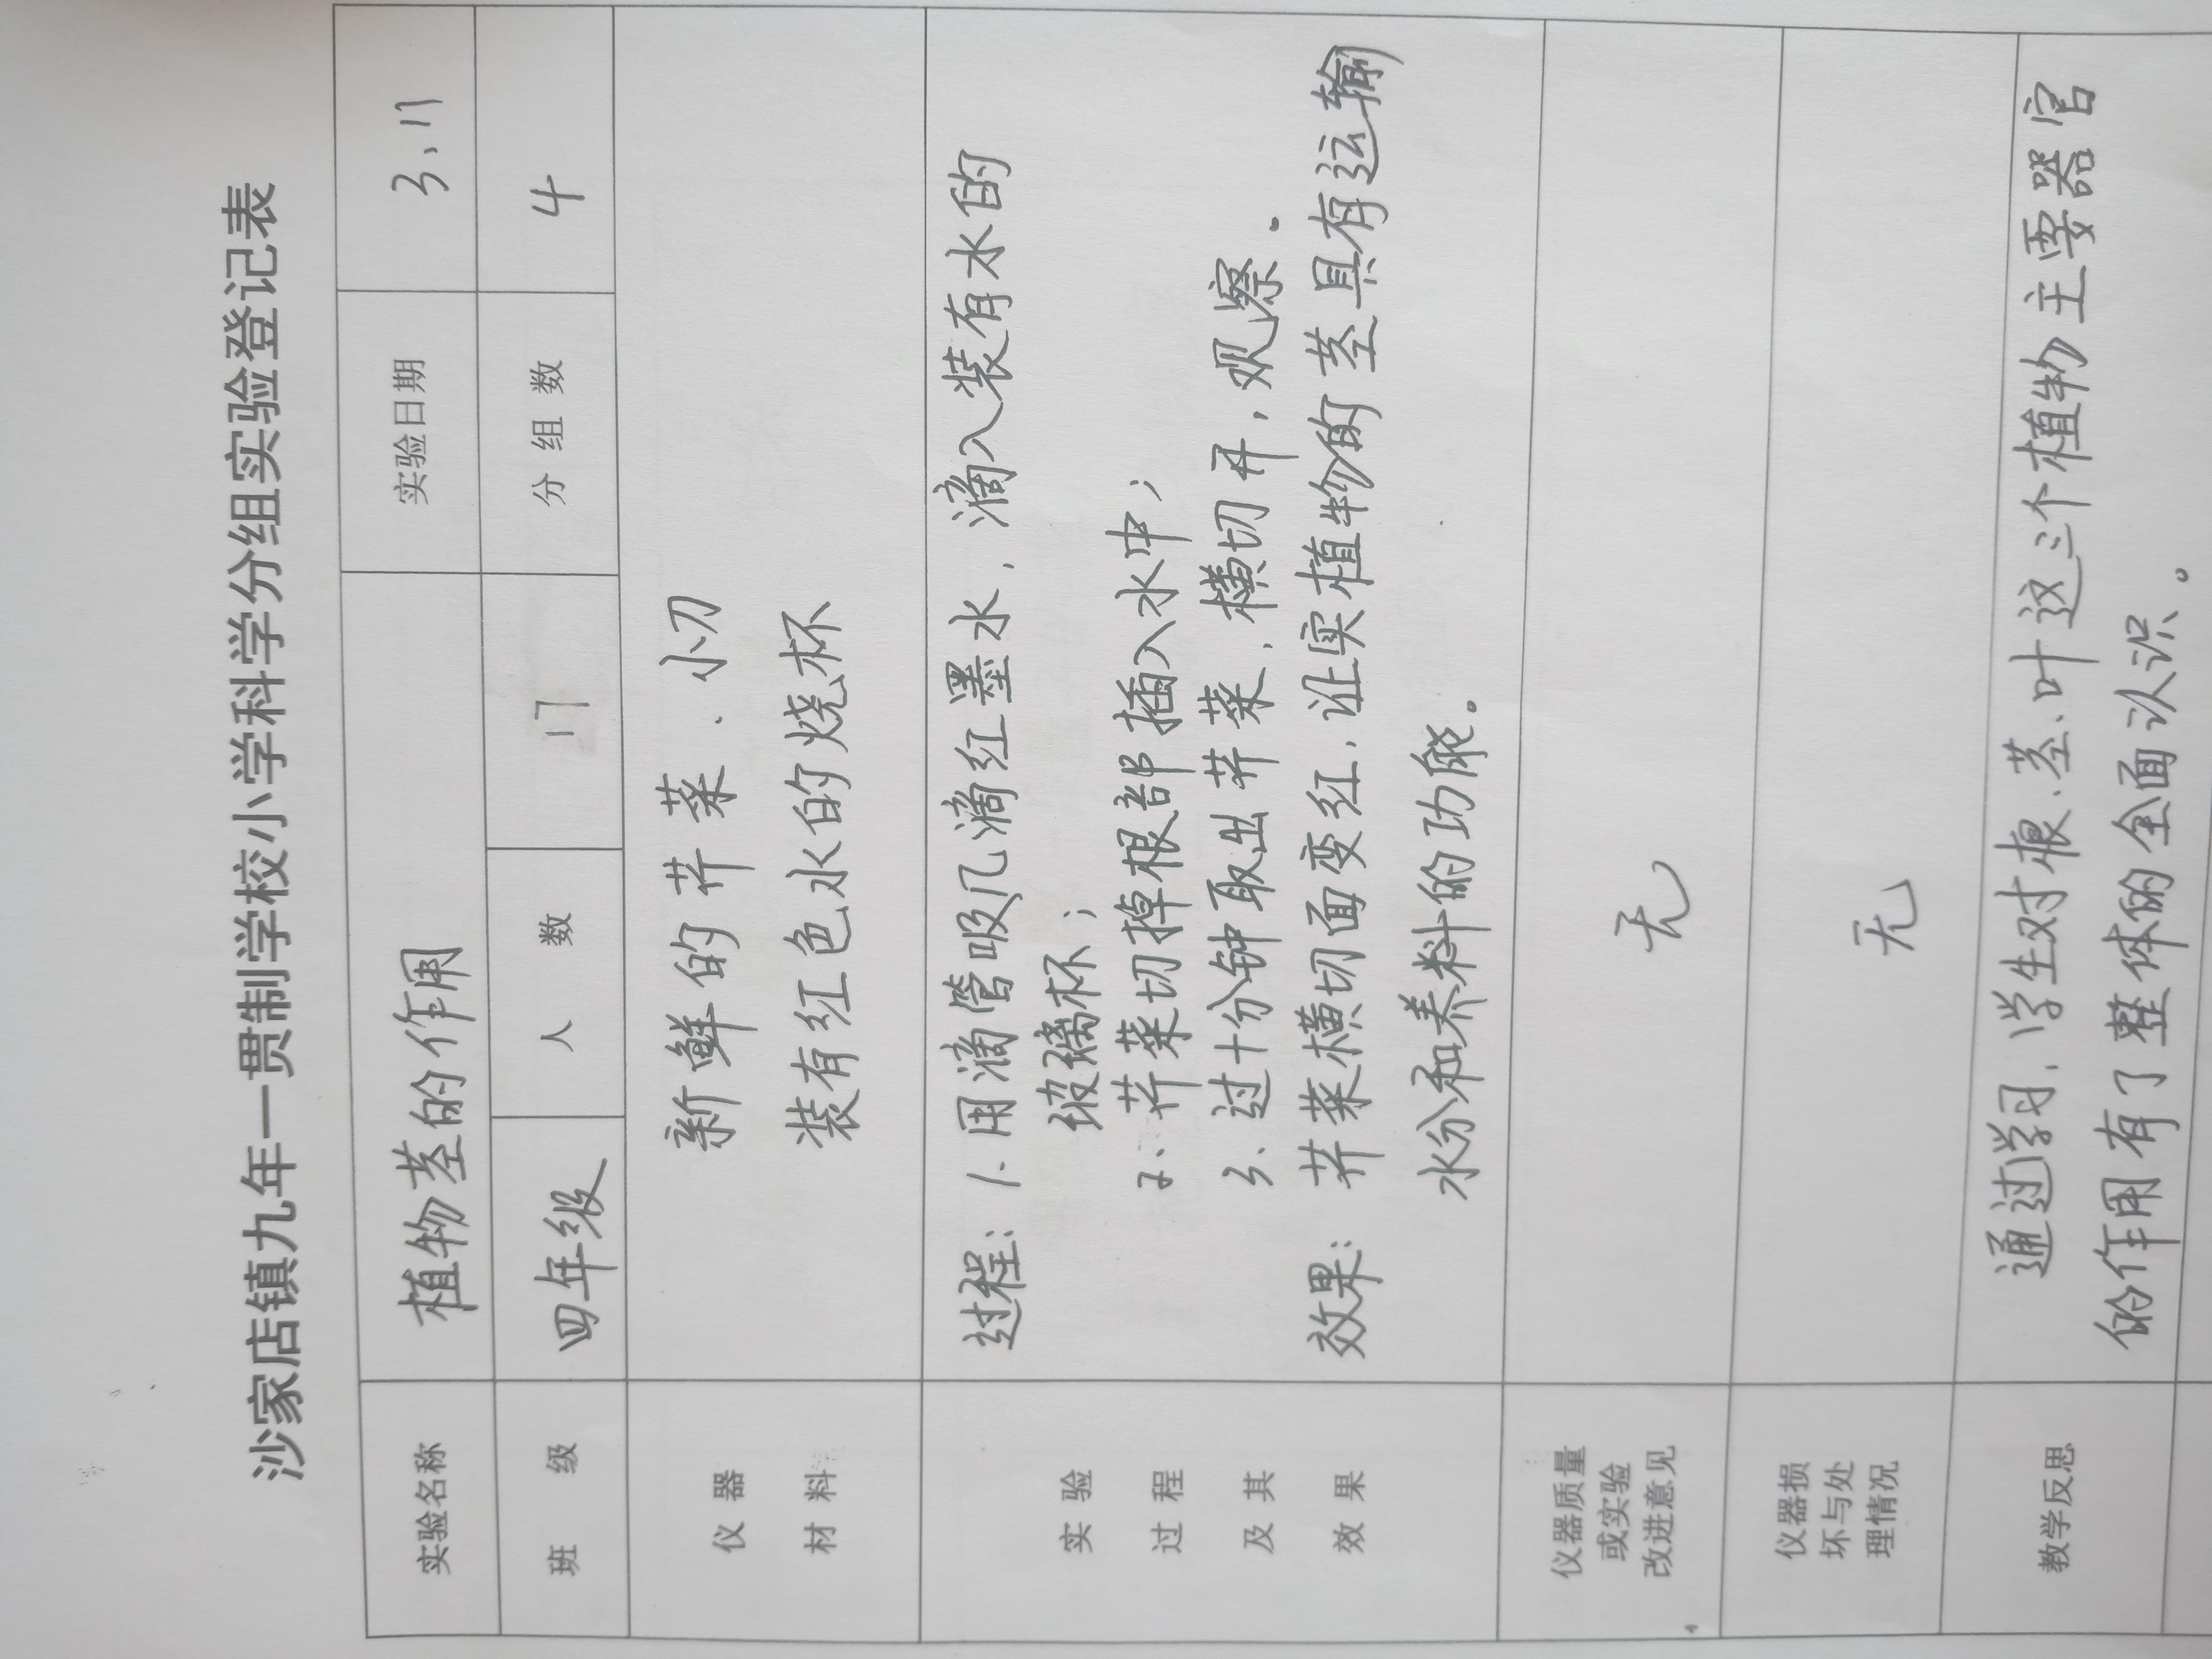 沙家店镇九年一贯制学校小学科学分组实验登记表
实验名称 植物茎的作用 实验日期 3、11
班 级 四年级 人 数 17 分 组 数 4
仪 器 材 料
新鲜的芹菜、小刀
装有红色水的烧杯
实 验 过 程 及 其 效 果
过程: 1、用滴管吸几滴红墨水,滴入装有水的
玻璃杯;
2、芹菜切掉根部插入水中;
3、过十分钟取出芹菜,横切开,观察。
效果: 芹菜横切面变红,让实植物的茎具有运输
水分和养料的功能。
仪器质量
或实验
改进意见
无
仪器损
坏与处
理情况
无
教学反思
通过学习,学生对根、茎、叶这三个植物主要器官
的作用有了整体的全面认识。